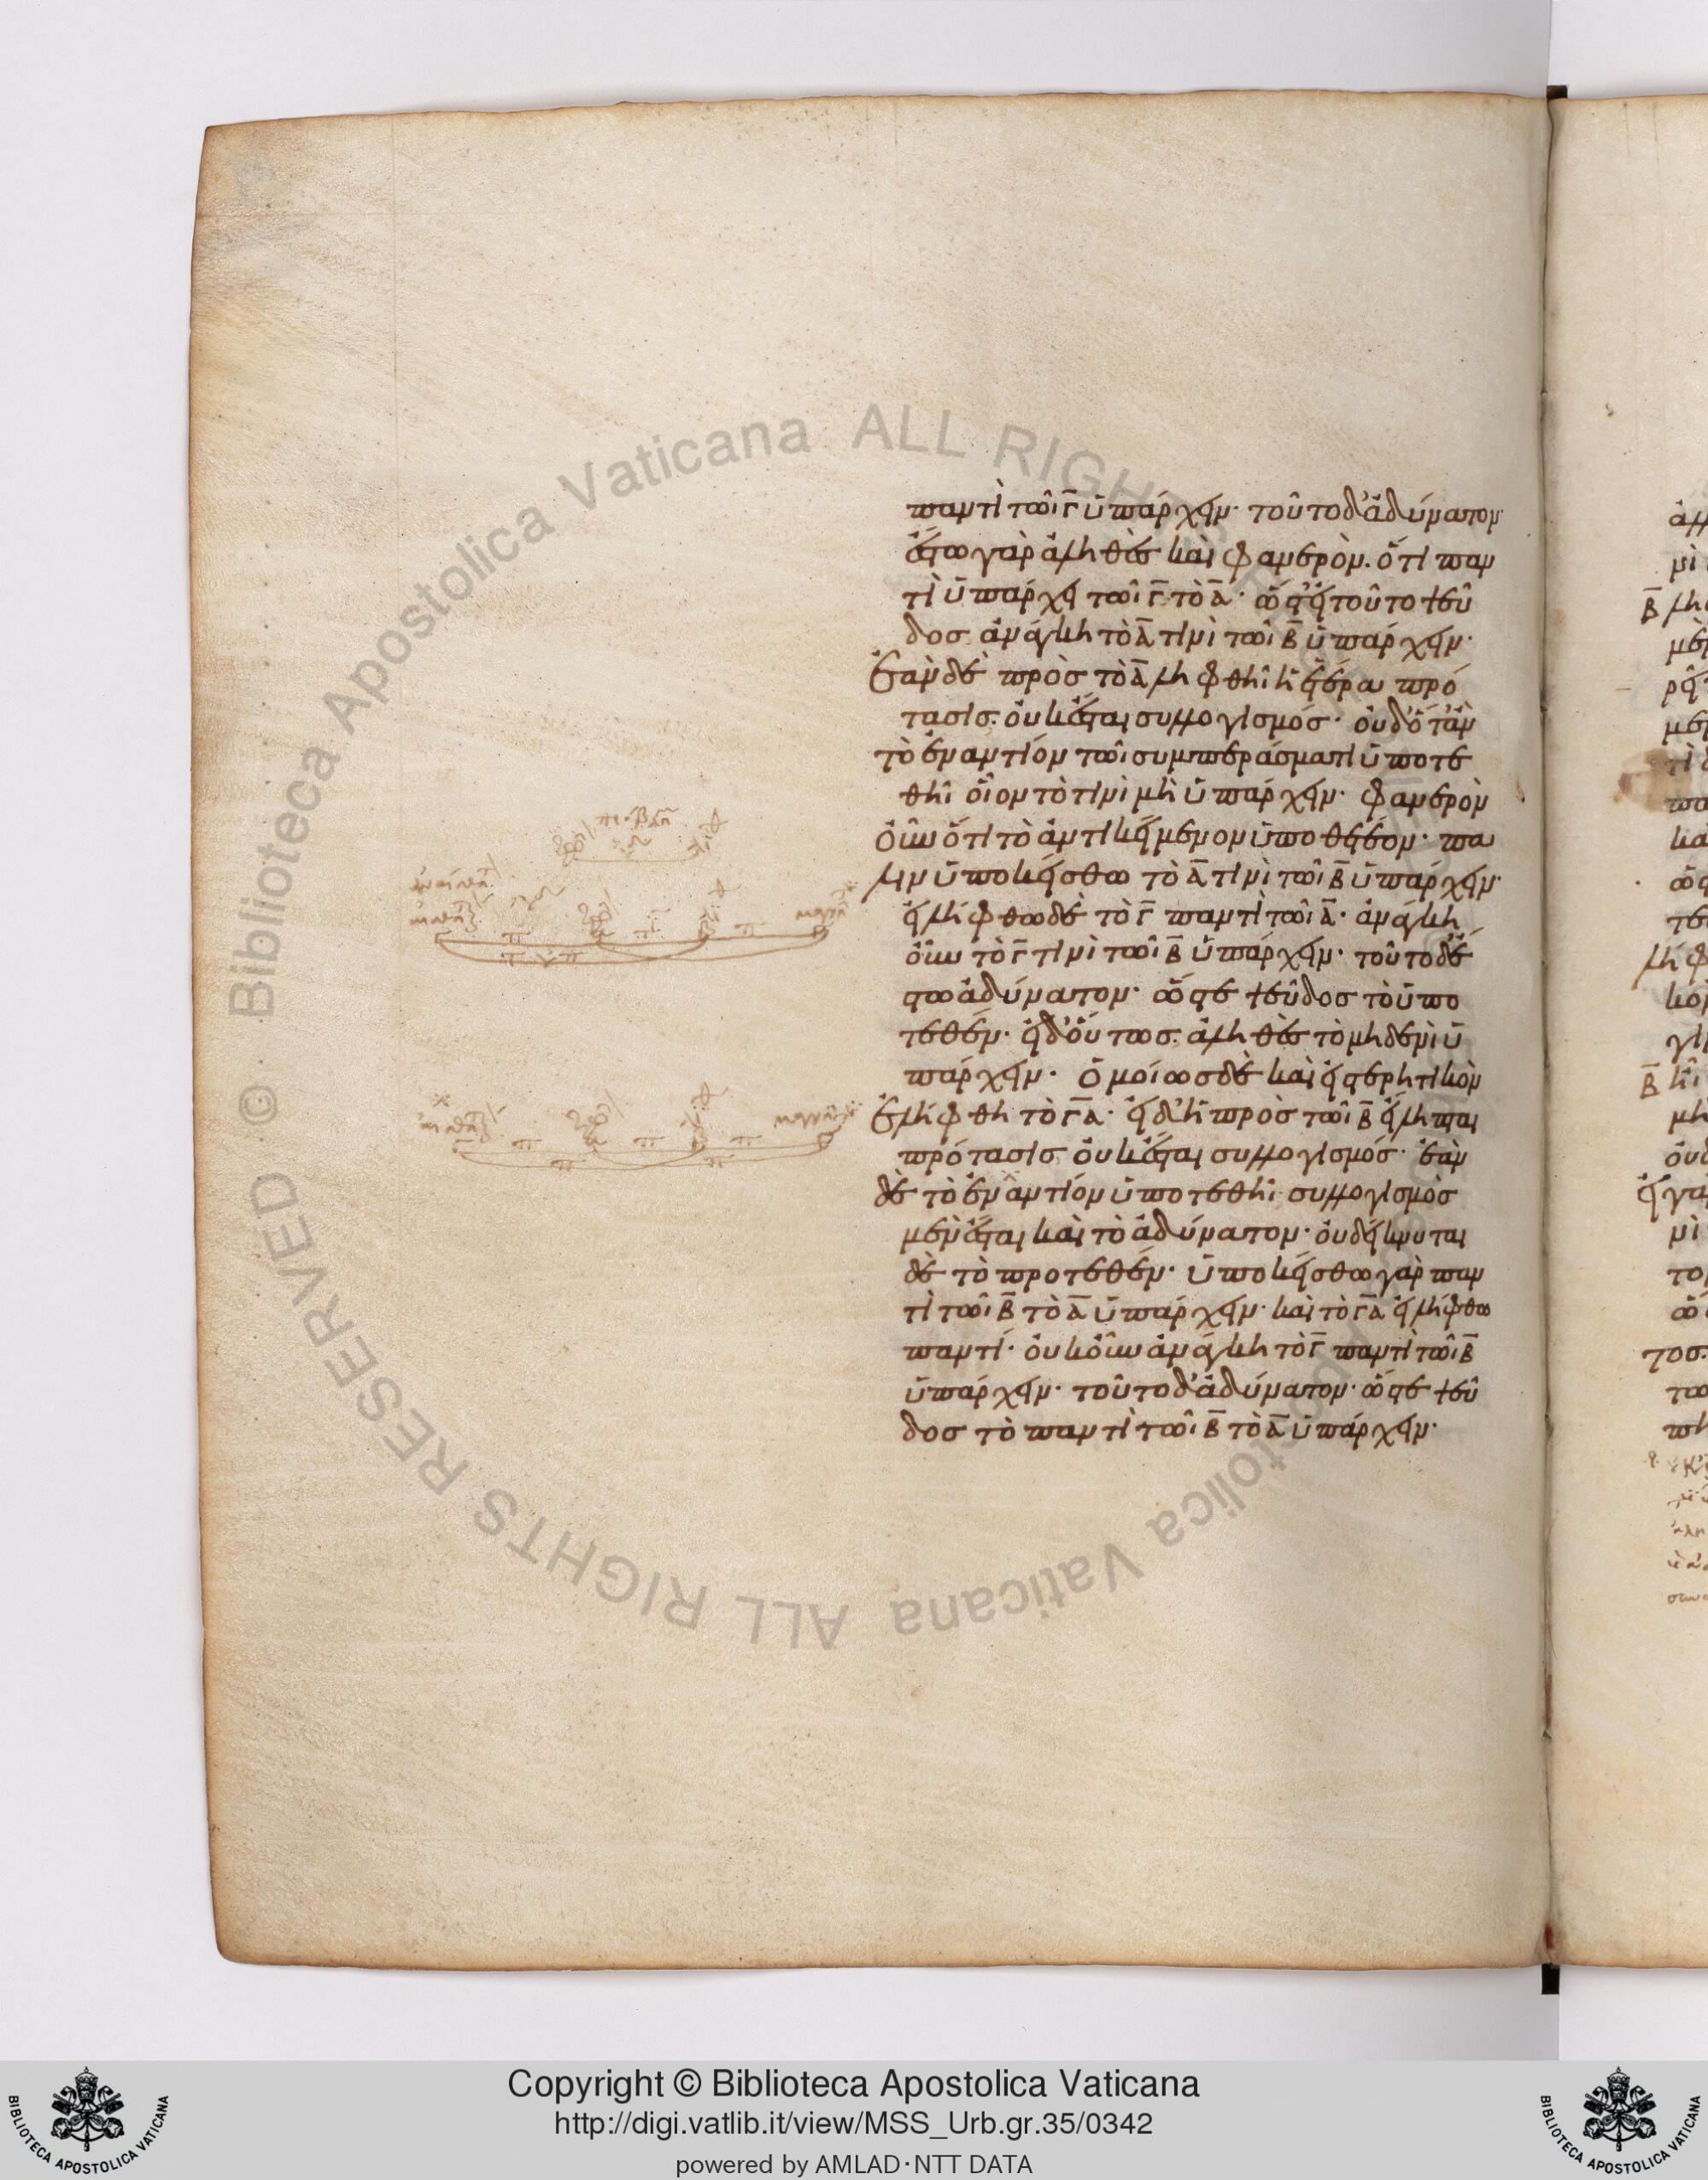 παντὶ τῶι Γ ὑπάρχειν· τοῦτο δ' ἀδύνατον·
ἔστω γὰρ ἀληθὲς καὶ φανερὸν· ὅτι παν
τὶ ὑπάρχει τῶι Γ τὸ Α· ὥστ' εἰ τοῦτο ψεῦ
δος ἀνάγκη τὸ Α τινὶ τῶι Β ὑπάρχειν·
Ἐὰν δὲ πρὸς τὸ Α ληφθῆι ἡ ἑτέρα πρό
τασις· οὐκ ἔσται συλλογισμός· οὐδ' ὅταν
τὸ ἐναντίον τῶι συμπεράσματι ὑποτε
θῆι οἷον τὸ τινὶ μὴ ὑπάρχειν· φανερὸν
οὖν ὅτι τὸ ἀντικείμενον ὑποθετέον· πά
λιν ὑποκείσθω τὸ Α τινὶ τῶι Β ὑπάρχειν·
εἰλήφθω δὲ τὸ Γ παντὶ τῶι Α· ἀνάγκη
οὖν τὸ Γ τινὶ τῶι Β ὑπάρχειν· τοῦτο δὲ ἔ
στω ἀδύνατον· ὥστε ψεῦδος τὸ ὑπο
τεθέν· εἰ δ' οὕτως· ἀληθὲς τὸ μηδενὶ ὑ
πάρχειν· Ὁμοίως δὲ καὶ εἰ στερητικὸν
ἐλήφθη τὸ ΓΑ· εἰ δ' ἡ πρὸς τῶι Β εἴληπται
πρότασις οὐκ ἔσται συλλογισμός· ἐὰν
δὲ τὸ ἐναντίον ὑποτεθῆι συλλογισμὸς
μὲν ἔσται καὶ τὸ ἀδύνατον· οὐ δείκνυται
δὲ τὸ προτεθέν· ὑποκείσθω γὰρ παν
τὶ τῶι Β τὸ Α ὑπάρχειν· καὶ τὸ ΓΑ εἰλήφθω
παντί· οὐκοῦν ἀνάγκη τὸ Γ παντὶ τῶι Β
ὑπάρχειν· τοῦτο δ' ἀδύνατον· ὥστε ψεῦ
δος τὸ παντὶ τῶι Β τὸ Α ὑπάρχειν·
Copyright © Biblioteca Apostolica Vaticana
http://digi.vatlib.it/view/MSS_Urb.gr.35/0342
powered by AMLAD·NTT DATA